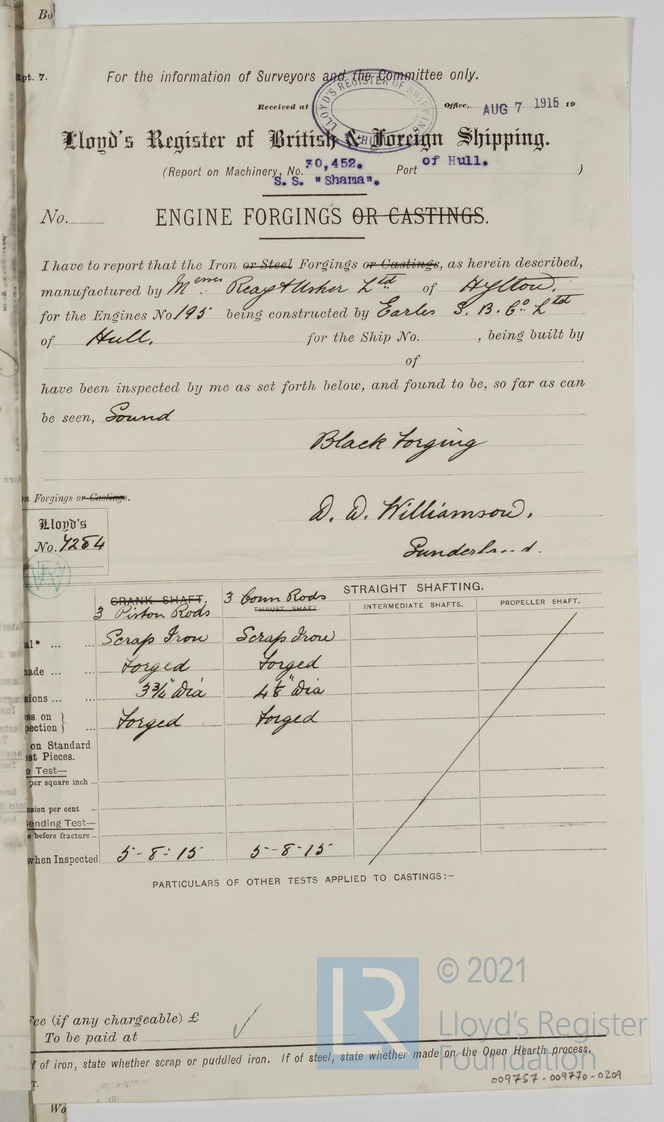 Bo
pt. 7.
For the information of Surveyors and the Committee only.
Received at Office, AUG 7 1915 19
LLOYD'S REGISTER OF SHIPPING
HULL
Lloyd's Register of British & Foreign Shipping.
(Report on Machinery, No. 30,452. Port of Hull. )
S.S. "Shama".
No.
ENGINE FORGINGS OR CASTINGS.
I have to report that the Iron or Steel Forgings or Castings, as herein described,
manufactured by Messrs Reay & Usher Ltd of Hylton.
for the Engines No 195 being constructed by Earles S. B. Co. Ltd
of Hull. for the Ship No. , being built by
of
have been inspected by me as set forth below, and found to be, so far as can
be seen, Sound
Black Forging
n Forgings or Castings.
D. D. Williamson.
Lloyd's
No. 7254
Sunderland.
STRAIGHT SHAFTING.
CRANK SHAFT. 3 Conn Rods
3 Piston Rods THRUST SHAFT. INTERMEDIATE SHAFTS. PROPELLER SHAFT.
al* ... ... Scrap Iron Scrap Iron
ade ... ... Forged Forged
sions ... ... 3¾" Dia 4⅛" Dia
ss on } Forged Forged
pection } ...
on Standard
st Pieces.
e Test—
per square inch ...
nsion per cent ...
ending Test—
e before fracture ...
when Inspected 5-8-15 5-8-15
PARTICULARS OF OTHER TESTS APPLIED TO CASTINGS:—
Fee (if any chargeable) £
To be paid at
f of iron, state whether scrap or puddled iron. If of steel, state whether made on the Open Hearth process.
T.
LR
© 2021
Lloyd's Register
Foundation
009757-009770-0209
Wo